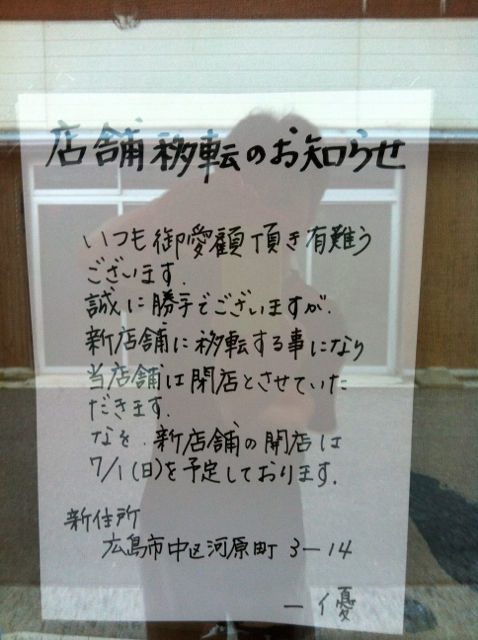 店舗移転のお知らせ
いつも御愛顧頂き有難う
ございます.
誠に勝手でございますが.
新店舗に移転する事になり
当店舗は閉店とさせていた
だきます.
なを.新店舗の開店は
7/1(日)を予定しております.
新住所
広島市中区河原町 3-14
一優